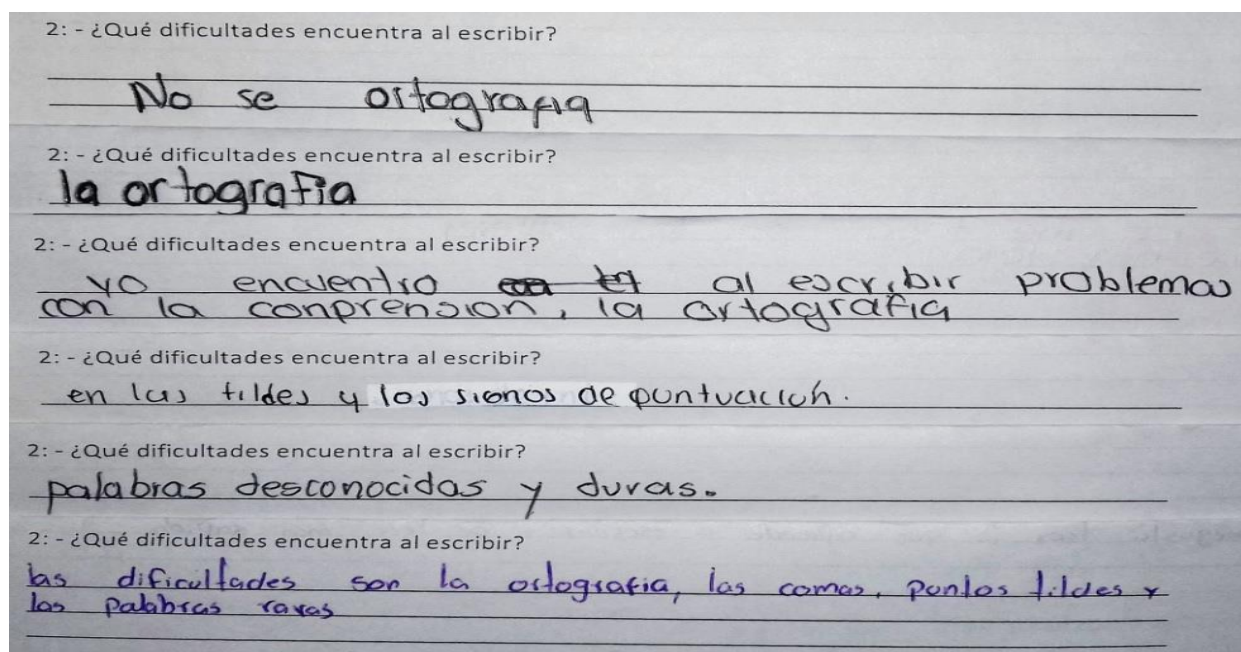 2: - ¿Qué dificultades encuentra al escribir?
No se ortografia
2: - ¿Qué dificultades encuentra al escribir?
la ortografia
2: - ¿Qué dificultades encuentra al escribir?
yo encuentro al escribir problemas
con la conprension, la ortografia
2: - ¿Qué dificultades encuentra al escribir?
en las tildes y los sionos de puntuacion.
2: - ¿Qué dificultades encuentra al escribir?
palabras desconocidas y duras.
2: - ¿Qué dificultades encuentra al escribir?
las dificultades son la ortografia, las comas, puntos tildes y
las palabras raras